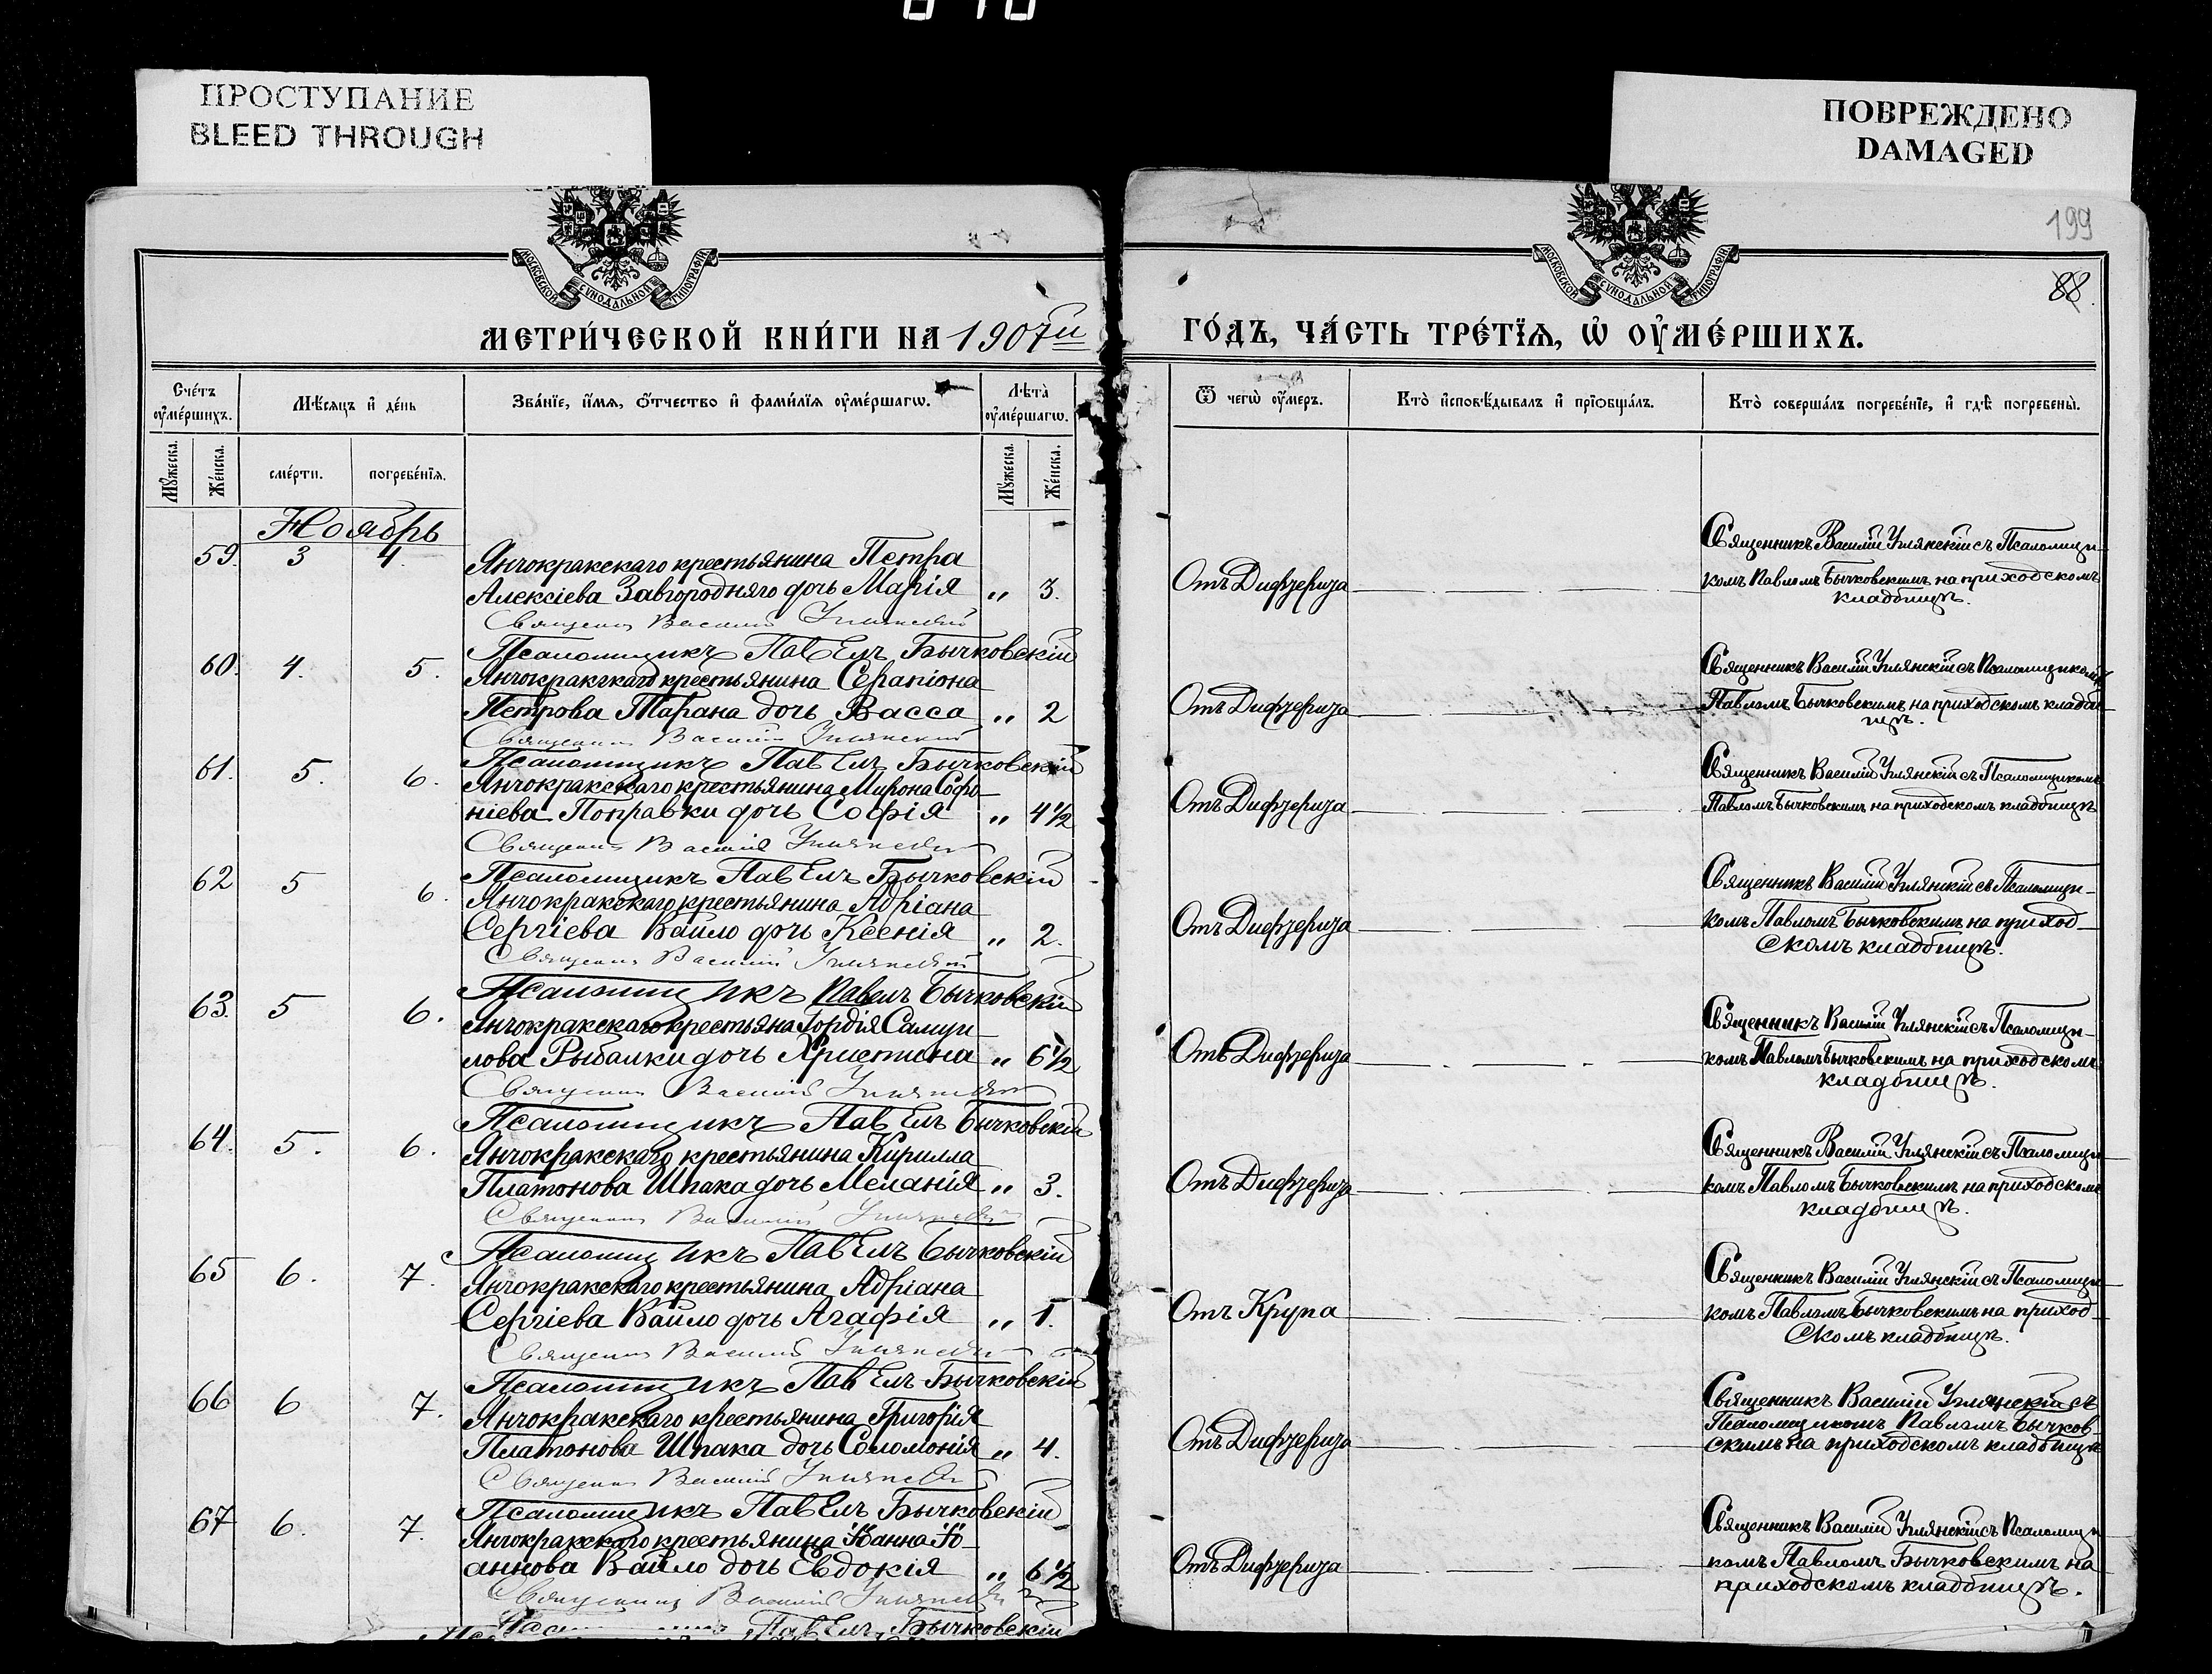 ПРОСТУПАНИЕ
BLEED THROUGH
ПОВРЕЖДЕНО
DAMAGED
199
88.
МОСКОВСКОЙ СѴНОДАЛЬНОЙ ТИПОГРАФІИ
МОСКОВСКОЙ СѴНОДАЛЬНОЙ ТИПОГРАФІИ
МЕТРИ́ЧЕСКОЙ КНИ́ГИ НА 1907й
ГО́ДЪ, ЧА́СТЬ ТРЕ́ТЇѦ, Ѡ҆ ОУ҆МЕ́РШИХЪ.
Сче́тъ оу҆ме́ршихъ.
Мѣ́сяцъ и҆ де́нь
Зва́нїе, и҆́мя, ѻ҆́тчество и҆ фами́лїя оу҆ме́ршагѡ.
Лѣ́та̀ оу҆ме́ршагѡ.
Мꙋ́жеска.
Же́нска.
сме́рти.
погребе́нїя.
Мꙋ́жеска.
Же́нска.
Ѿ чегѡ̀ оу҆́меръ.
Кто̀ и҆сповѣ́дывалъ и҆ прїѻбща́лъ.
Кто̀ соверша́лъ погребе́нїе, и҆ гдѣ̀ погребены̀.
Ноябрь
59. 3 4. Янчокракскаго крестьянина Петра
Алексіева Завгородняго дочь Марія „ 3.
Отъ Дифтерита
Священникъ Василій Улянскій съ Псаломщи-
комъ Павломъ Бычковскимъ на приходскомъ
кладбищѣ.
Священникъ Василій Улянскій
Псаломщикъ Павелъ Бычковскій
60. 4. 5. Янчокракскаго крестьянина Серапіона
Петрова Тарана дочь Васса „ 2
Отъ Дифтерита
Священникъ Василій Улянскій съ Псаломщикомъ
Павломъ Бычковскимъ на приходскомъ кладби
щѣ.
Священникъ Василій Улянскій
Псаломщикъ Павелъ Бычковскій
61. 5. 6. Янчокракскаго крестьянина Мирона Софо-
ніева Поправки дочь Софія „ 4½
Отъ Дифтерита
Священникъ Василій Улянскій съ Псаломщикомъ
Павломъ Бычковскимъ на приходскомъ кладбищѣ
Священникъ Василій Улянскій
Псаломщикъ Павелъ Бычковскій
62 5 6. Янчокракскаго крестьянина Адріана
Сергіева Вайло дочь Ксенія „ 2.
Отъ Дифтерита
Священникъ Василій Улянскій съ Псаломщи-
комъ Павломъ Бычковскимъ на приход-
скомъ кладбищѣ.
Священникъ Василій Улянскій
Псаломщикъ Павелъ Бычковскій
63. 5 6. Янчокракскаго крестьяна Гордія Самуи-
лова Рыбалки дочь Христина „ 6½
Отъ Дифтерита
Священникъ Василій Улянскій съ Псаломщи-
комъ Павломъ Бычковскимъ на приходскомъ
кладбищѣ.
Священникъ Василій Улянскій
Псаломщикъ Павелъ Бычковскій
64. 5. 6. Янчокракскаго крестьянина Кирилла
Платонова Шпака дочь Меланія „ 3.
Отъ Дифтерита
Священникъ Василій Улянскій съ Псаломщи-
комъ Павломъ Бычковскимъ на приходскомъ
кладбищѣ.
Священникъ Василій Улянскій
Псаломщикъ Павелъ Бычковскій
65 6. 7. Янчокракскаго крестьянина Адріана
Сергіева Вайло дочь Агафія „ 1.
Отъ Крупа
Священникъ Василій Улянскій съ Псаломщи-
комъ Павломъ Бычковскимъ на приход-
скомъ кладбищѣ.
Священникъ Василій Улянскій
Псаломщикъ Павелъ Бычковскій
66 6 7. Янчокракскаго крестьянина Григорія
Платонова Шпака дочь Соломонія „ 4.
Отъ Дифтерита
Священникъ Василій Улянскій съ
Псаломщикомъ Павломъ Бычков-
скимъ на приходскомъ кладбищѣ
Священникъ Василій Улянскій
Псаломщикъ Павелъ Бычковскій
67 6. 7. Янчокракскаго крестьянина Іоанна Іо-
аннова Вайло дочь Евдокія „ 6½
Отъ Дифтерита
Священникъ Василій Улянскій съ Псаломщи
комъ Павломъ Бычковскимъ на
приходскомъ кладбищѣ.
Священникъ Василій Улянскій
Павелъ Бычковскій